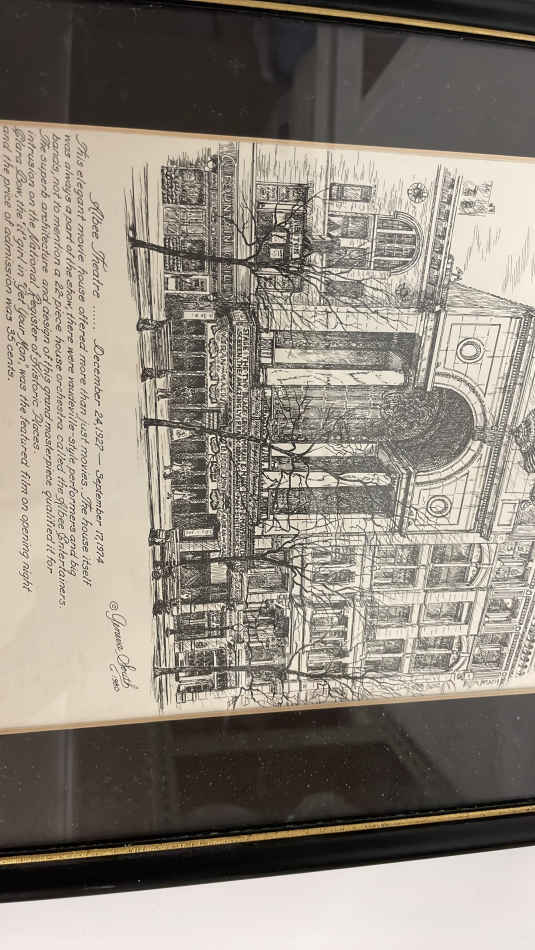 Albee Theatre ...... December 24, 1927 — September 17, 1974
This elegant movie house offered more than just movies. The house itself
was always a part of the show. There were vaudeville-style performers and big
bands, not to mention a 22-piece house orchestra called the Albee Entertainers.
The superb architecture and design of this grand masterpiece qualified it for
intrusion on the National Register of Historic Places.
Clara Bow, the "it" girl in "Get Your Man" was the featured film on opening night
and the price of admission was 35 cents.
© Geneva South
1980